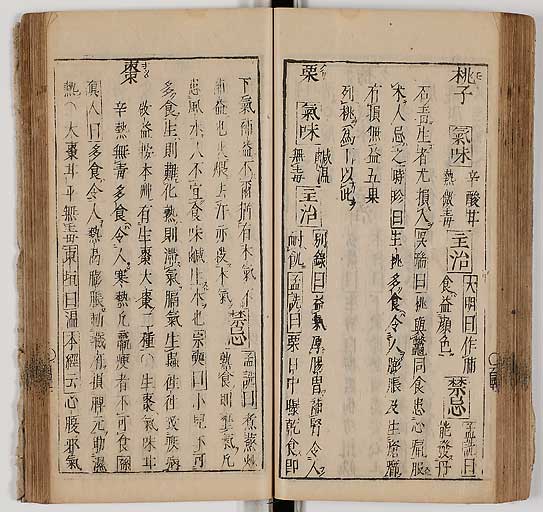 桃子 氣味 辛酸甘熱微毒 主治 大明曰作脯食益顔色 禁忌 孟詵曰能發丹
石毒生者尤損人 吳瑞曰桃與鱉同食患心痛服
朮人忌之時珍曰生桃多食令人膨脹及生癰癤
有損無益五果
列桃爲下以此
栗 氣味 鹹溫無毒 主治 別錄曰益氣厚腸胃補腎令人
耐飢孟詵曰栗日中曝乾食即
下氣補益不爾猶有木氣不
補益也火煨去汗亦殺木氣 禁忌 孟詵曰煮蒸炒
熱食則壅氣凡
患風水人不宜食味鹹生水也宗奭曰小兒不可
多食生則難化熟則滯氣膈氣生蟲往往致疾病
棗 故益按本艸有生棗大棗二種 生棗氣味甘
辛熱無毒多食令人寒熱凡羸瘦者不可食孫
眞人曰多食令人熱渴膨脹動臟有損脾元助濕
熱 大棗甘平無毒東垣曰溫本經云心腹邪氣